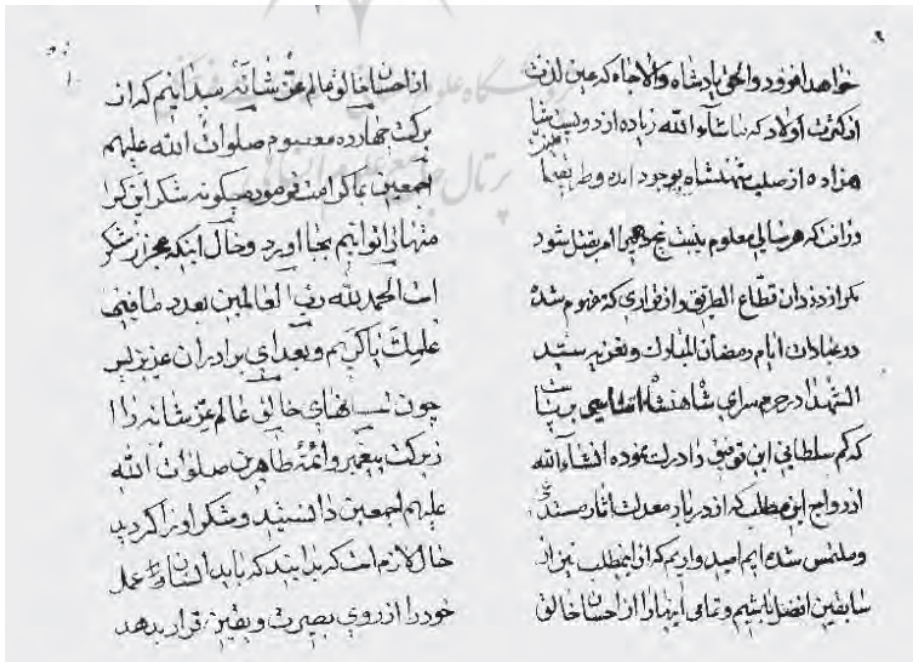 خواهد افزود والحق پادشاه والاجاه که عین لذت
از کثرت اولاد که ماشاء الله زیاده از دویست شا
هزاده از صلب شهنشاه بوجود آمده وطریقهٔ
که هر سالی معلوم نیست پنج دهی امر بقتل شود
مکر از دزدان قطاع الطریق واز قراری که مفهوم شده
در عبادات ایام رمضان المبارک وتعزیه سید
الشهدا در حرم سرای شاهنشاه
که کم سلطانی این توفیق را درک نموده انشاء الله
از رواج این مطلب که از دربار معدلت اثار
وملتمس شده ایم امید واریم که از این مطلب نیز از
سابقین افضل باشیم وتمامی اینها را از احسان خالق
از احسان خالق عالم عز شانه میدانیم که از
برکت چهارده معصوم صلوات الله علیهم
اجمعین بما کرامت فرموده چکونه شکر این کرا
متها را توانیم بجا اورد وحال اینکه عجز از شکر
است الحمد لله رب العالمین بعدد ما فی
علمک یا کریم وبعد ای برادران عزیز پس
چون احسانهای خالق عالم عز شانه را
از برکت پیغمبر وائمهٔ طاهرین صلوات الله
علیهم اجمعین دانستید وشکر او را کردید
حال لازم است که بدانید که باید انسان عمل
خود را از روی بصیرت ویقین قرار بدهد
پرتال جامع علوم انسانی